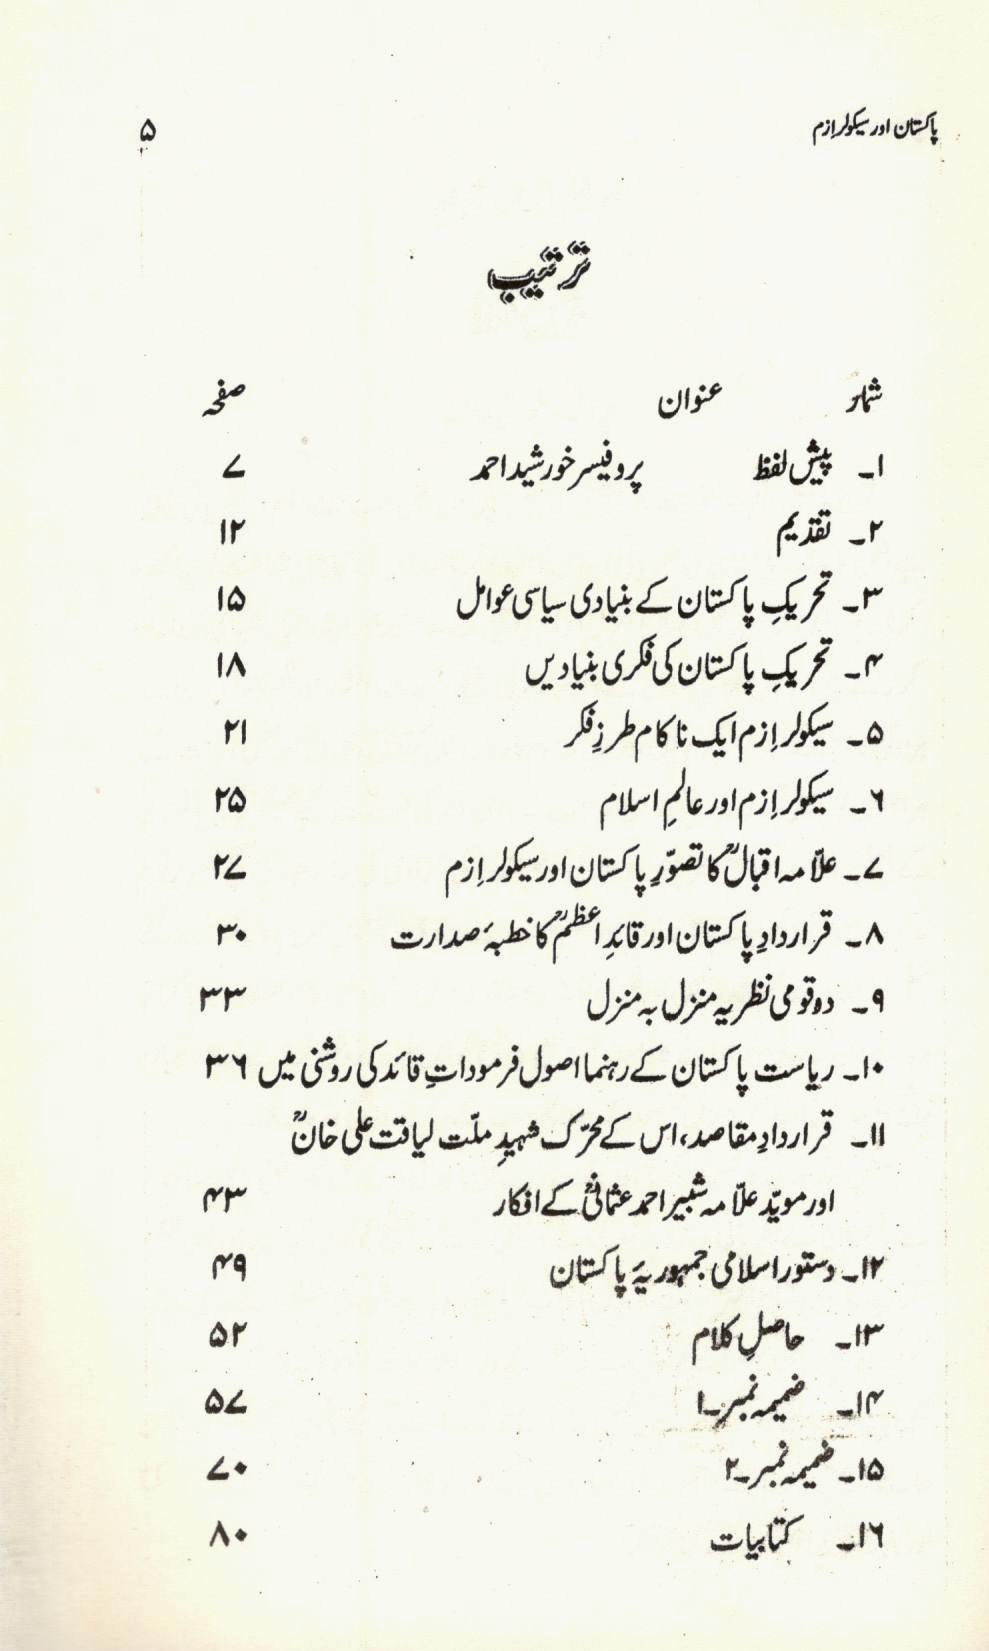 پاکستان اور سیکولرازم ۵
ترتیب
شمار عنوان صفحہ
۱۔ پیش لفظ پروفیسر خورشید احمد ۷
۲۔ تقدیم ۱۲
۳۔ تحریکِ پاکستان کے بنیادی سیاسی عوامل ۱۵
۴۔ تحریکِ پاکستان کی فکری بنیادیں ۱۸
۵۔ سیکولراِزم ایک ناکام طرزِ فکر ۲۱
۶۔ سیکولراِزم اور عالمِ اسلام ۲۵
۷۔ علاّمہ اقبالؒ کا تصوّرِ پاکستان اور سیکولراِزم ۲۷
۸۔ قراردادِ پاکستان اور قائدِ اعظمؒ کا خطبۂ صدارت ۳۰
۹۔ دو قومی نظریہ منزل بہ منزل ۳۳
۱۰۔ ریاست پاکستان کے رہنما اصول فرموداتِ قائد کی روشنی میں ۳۶
۱۱۔ قراردادِ مقاصد، اس کے محرّک شہیدِ ملّت لیاقت علی خانؒ
اور مویّد علاّمہ شبیر احمد عثمانیؒ کے افکار ۴۳
۱۲۔ دستور اسلامی جمہوریۂ پاکستان ۴۹
۱۳۔ حاصلِ کلام ۵۲
۱۴۔ ضمیمہ نمبر۔۱ ۵۷
۱۵۔ ضمیمہ نمبر۔۲ ۷۰
۱۶۔ کتابیات ۸۰